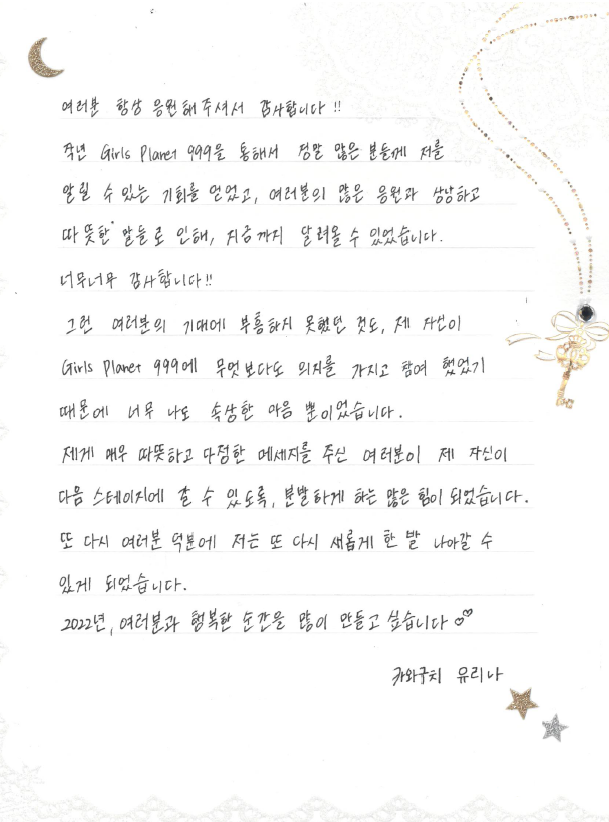 여러분 항상 응원해주셔서 감사합니다!!
작년 Girls Planet 999을 통해서 정말 많은 분들께 저를
알릴 수 있는 기회를 얻었고, 여러분의 많은 응원과 상냥하고
따뜻한 말들로 인해, 지금까지 달려올 수 있었습니다.
너무너무 감사합니다!!
그런 여러분의 기대에 부흥하지 못했던 것도, 제 자신이
Girls Planet 999에 무엇보다도 의지를 가지고 참여 했었기
때문에 너무 나도 속상한 마음 뿐이었습니다.
제게 매우 따뜻하고 다정한 메세지를 주신 여러분이 제 자신이
다음 스테이지에 갈 수 있도록, 분발하게 하는 많은 힘이 되었습니다.
또 다시 여러분 덕분에 저는 또 다시 새롭게 한 발 나아갈 수
있게 되었습니다.
2022년, 여러분과 행복한 순간을 많이 만들고 싶습니다♡♡
카와구치 유리나